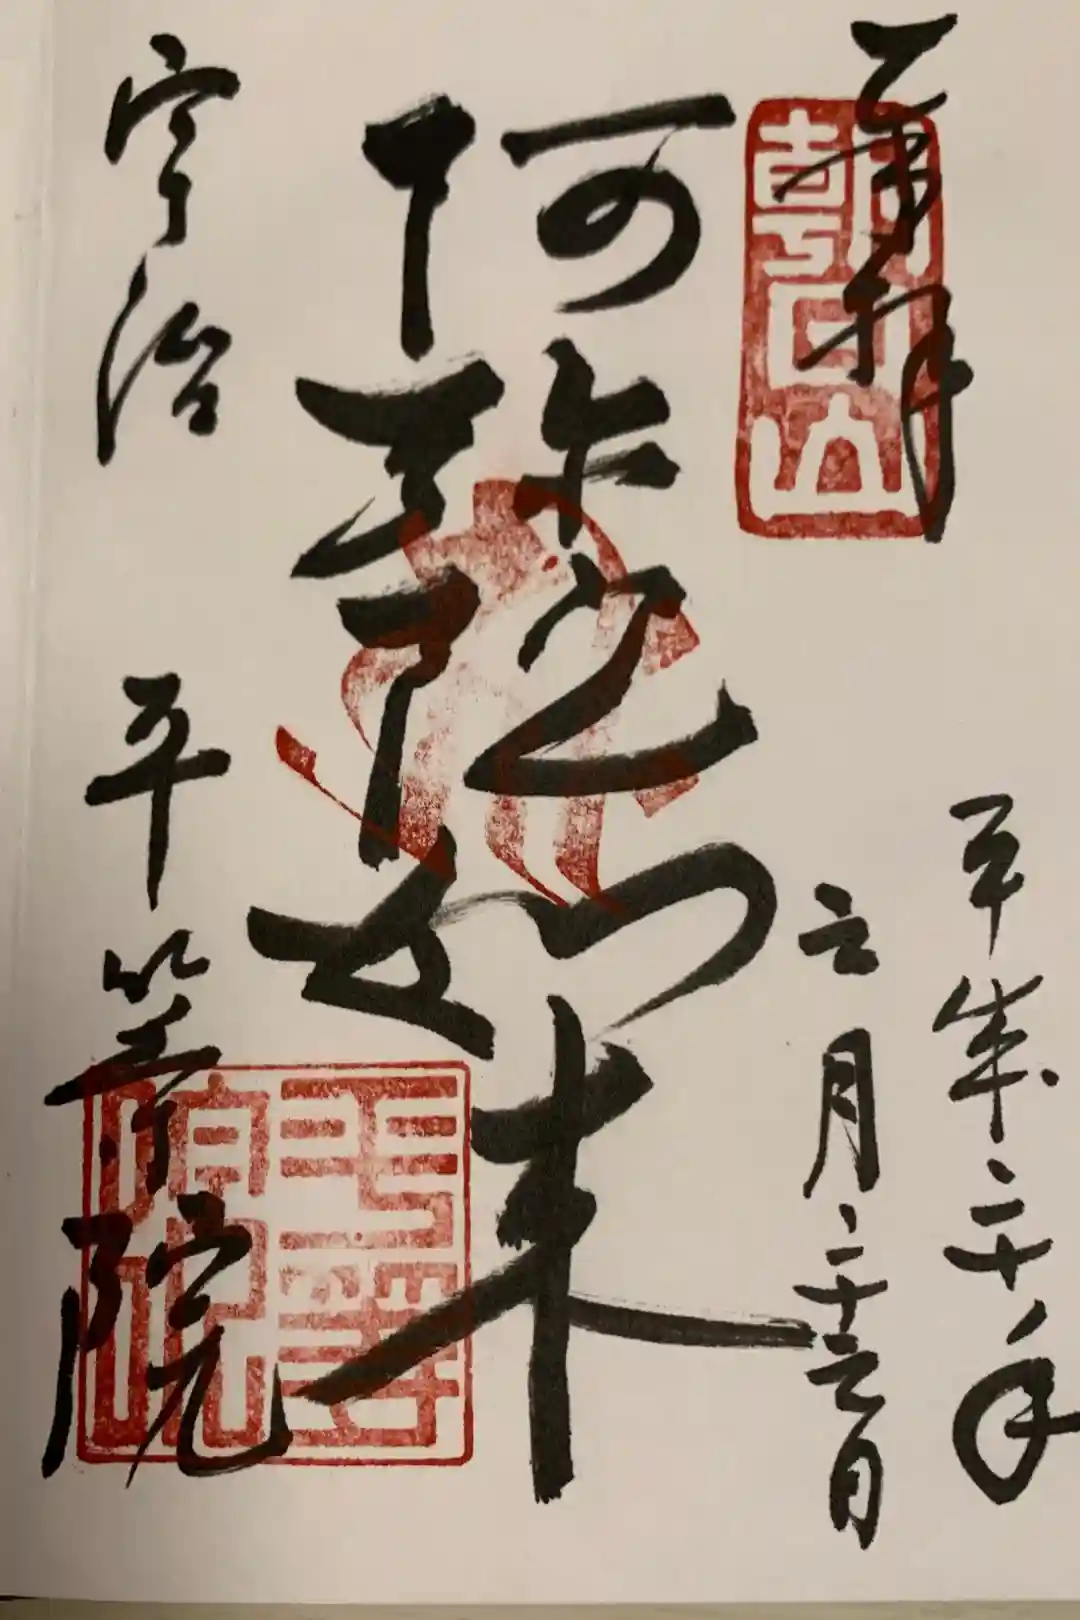 奉拝
朝日山
平成二十年
六月二十六日
阿弥陀如来
宇治 平等院
平等院印